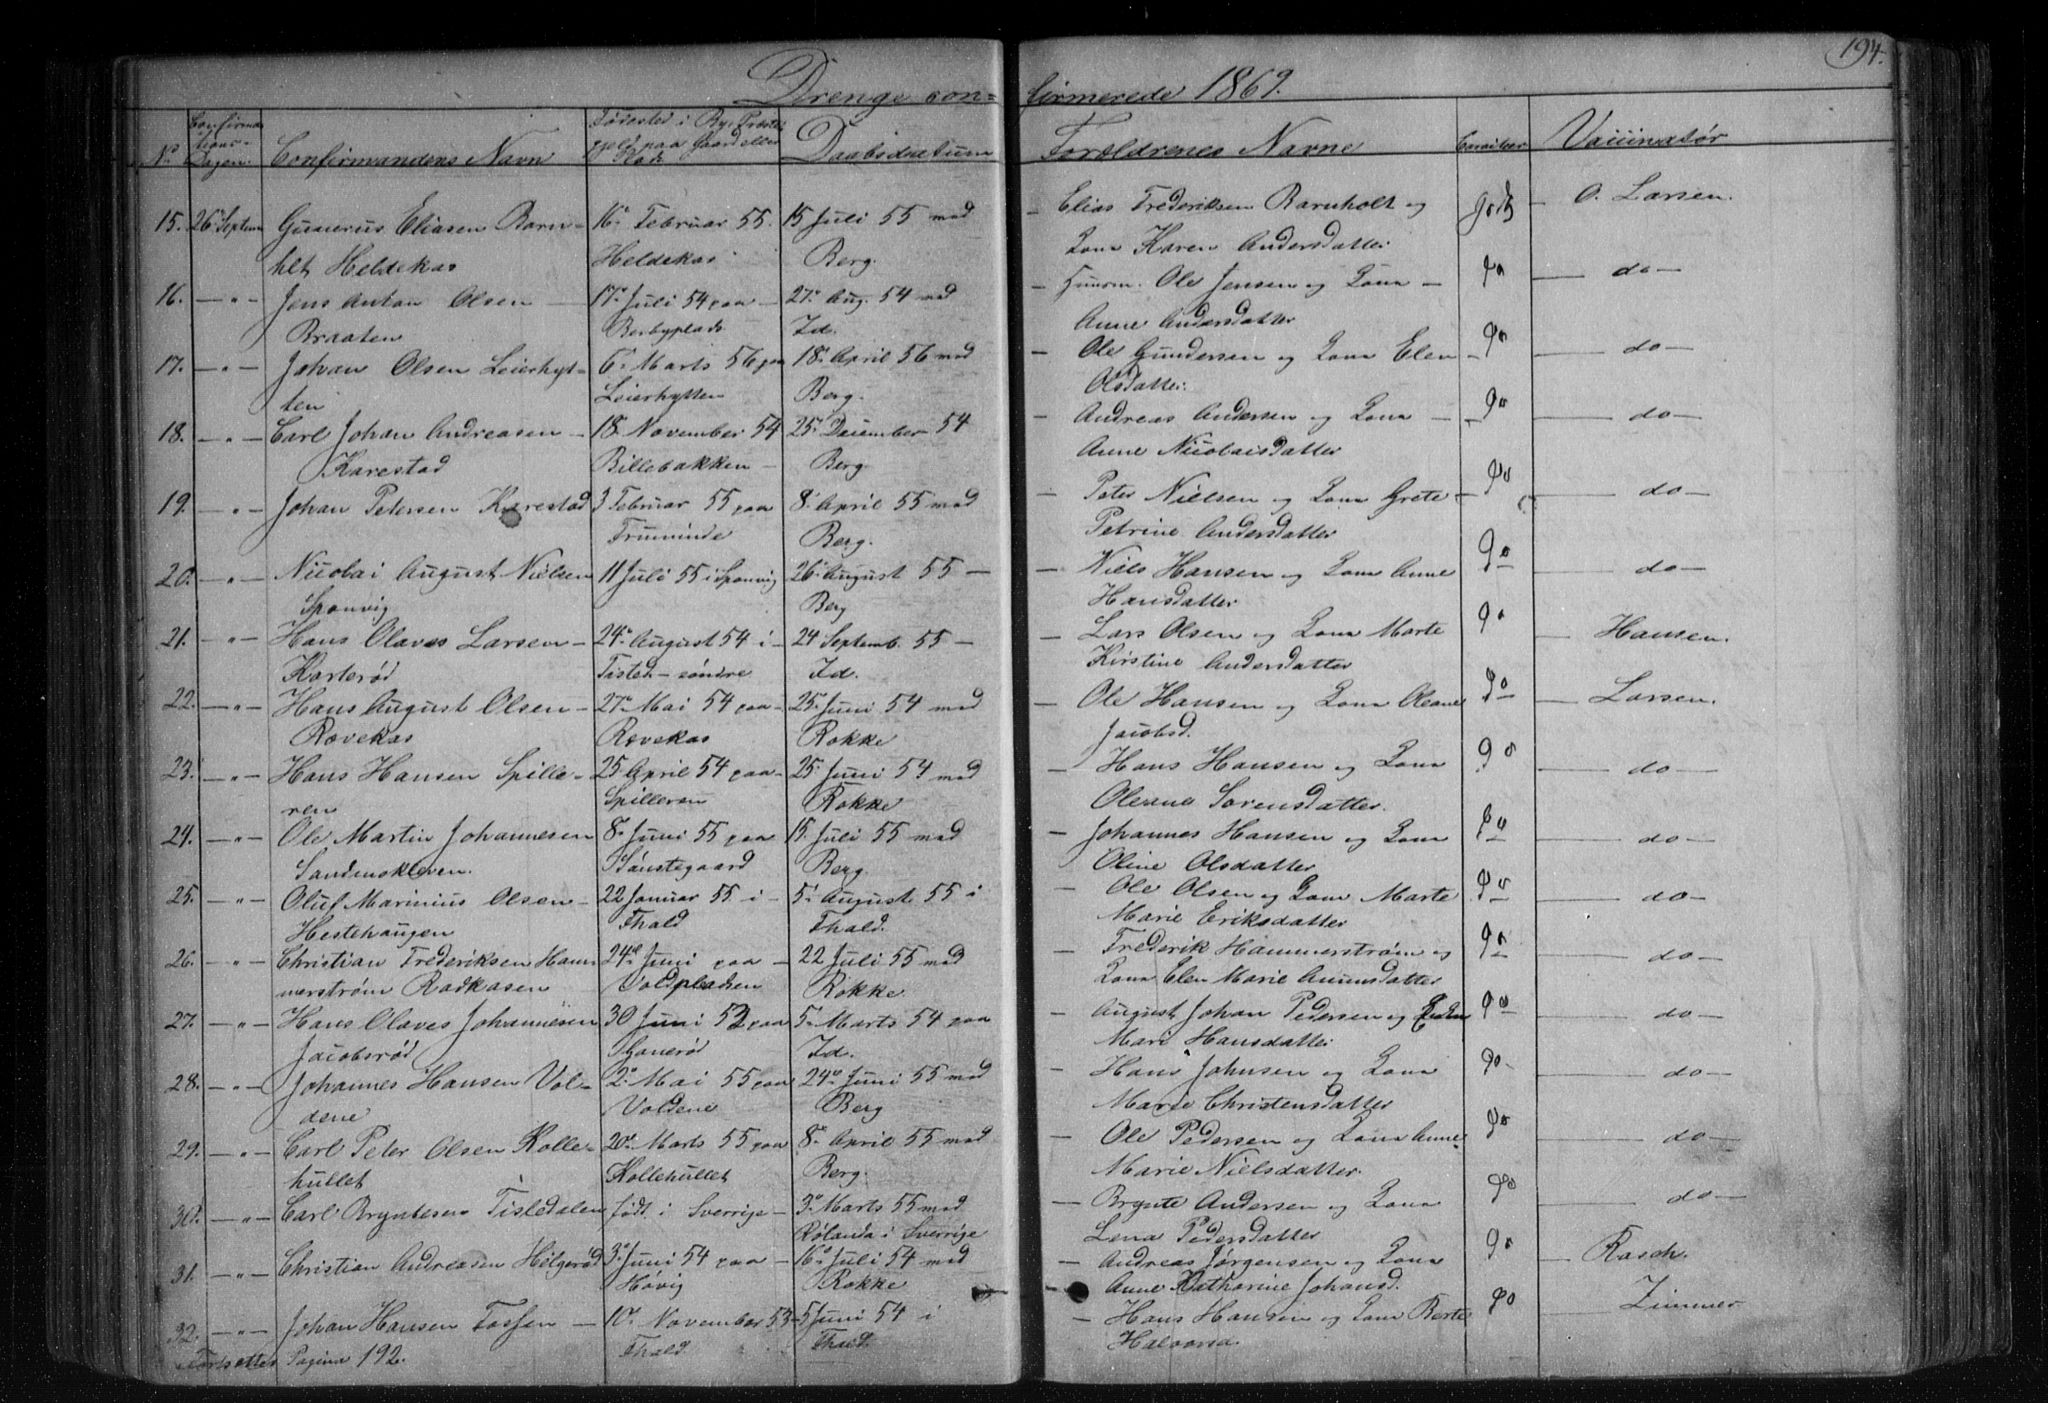 194.
Drenge con= firmerede 1869.
No Confirmations-Dagen. Confirmandens Navn Fødested i By, Præstegjeld paa Gaard eller Plads Daabsdatum Forældrenes Navne Vaccinatør
15. 26 Septem Gunerus Eliasen Barn- 16 Februar 55. 15 Juli 55 med Elias Frederiksen Barnholt og godt O. Larsen.
holt Heldekas Heldekas Berg. Kona Karen Andersdatter
16. -"- Jens Anton Olsen 17 Juli 54 paa 27 Aug. 54 med Huusm. Ole Jensen og Kona do do
Braaten Berbyplads Id. Anne Andersdatter
17. -"- Johan Olsen Leierhyt- 6 Marts 56 paa 18 April 56 med Ole Gundersen og Kona Elen do do
ten Leierhytten Berg. Olsdatter.
18. -"- Carl Johan Andreasen 18 November 54 25 December 54 Andreas Andersen og Kona do do
Karestad Billebakken Berg. Anne Nicolaisdatter
19. -"- Johan Petersen Karestad 3 Februar 55 paa 8 April 55 med Peter Nielsen og Kona Grete do do
Truminde Berg. Petrine Andersdatter
20. -"- Nicolai August Nielsen 11 Juli 55 i Sponvig 26 August 55 Niels Hansen og Kona Anne do do
Sponvig Berg Hansdatter
21. -"- Hans Olaves Larsen 24 August 54 i 24 Septemb. 55 Lars Olsen og Kona Marte do Hansen.
Korterød Tisted søndre Id. Kirstine Andersdatter
22. -"- Hans August Olsen 27 Mai 54 paa 25 Juni 54 med Ole Hansen og Kona Oleane do Larsen.
Rævekas Rævekas Rokke Jacobsd.
23. -"- Hans Hansen Spille- 25 April 54 paa 25 Juni 54 med Hans Hansen og Kona do do
ren Spilleren Rokke Oleane Sorensdatter.
24. -"- Ole Martin Johannesen 8 Juni 55 paa 15 Juli 55 med Johannes Hansen og Kona do do
Sandenskleven. Tanstegaard Berg. Oline Olsdatter
25. -"- Oluf Marinius Olsen 22 Januar 55 i 5 August 55 i Ole Olsen og Kona Marte do do
Hestehaugen Fhald Fhald. Marie Eriksdatter
26. -"- Christian Frederiksen Ham- 24 Juni paa 22 Juli 55 med Frederik Hammerstrøm og do do
merstrøm Rødkasen Voldpladsen Rokke Kona Elen Marie Amunsdatter
27. -"- Hans Olaves Johannesen 30 Juni 53 paa 5 Marts 54 paa August Johan Pedersen og do do
Jacobsrød Id. Mari Hansdatter
28. -"- Johannes Hansen Vol- 2 Mai 55 paa 24 Juni 55 med Hans Johnsen og Kona do do
dene Voldene Berg Marie Christensdatter
29. -"- Carl Peter Olsen Kolle- 20 Marts 55 paa 8 April 55 med Ole Pedersen og Kona Anne do do
hullet Kollehullet Berg. Marie Nielsdatter.
30. -"- Carl Bryntesen Tisledalen født i Sverrige 3 Marts 55 med Brynte Andersen og Kona do do
Rølanda i Sverrige Lena Pedersdatter
31. -"- Christian Andreasen Helgerød 3 Juni 54 paa 16 Juli 54 med Andreas Jørgensen og Kona do Rasch.
Hovig Rokke Anne Katharine Johansd.
32. -"- Johan Hansen Fossen 10 November 53 5 Juni 54 i Hans Hansen og Kona Berte do Zimmer
Fortsættes Pagina 192. Fhald. Fhald. Halvorsd.